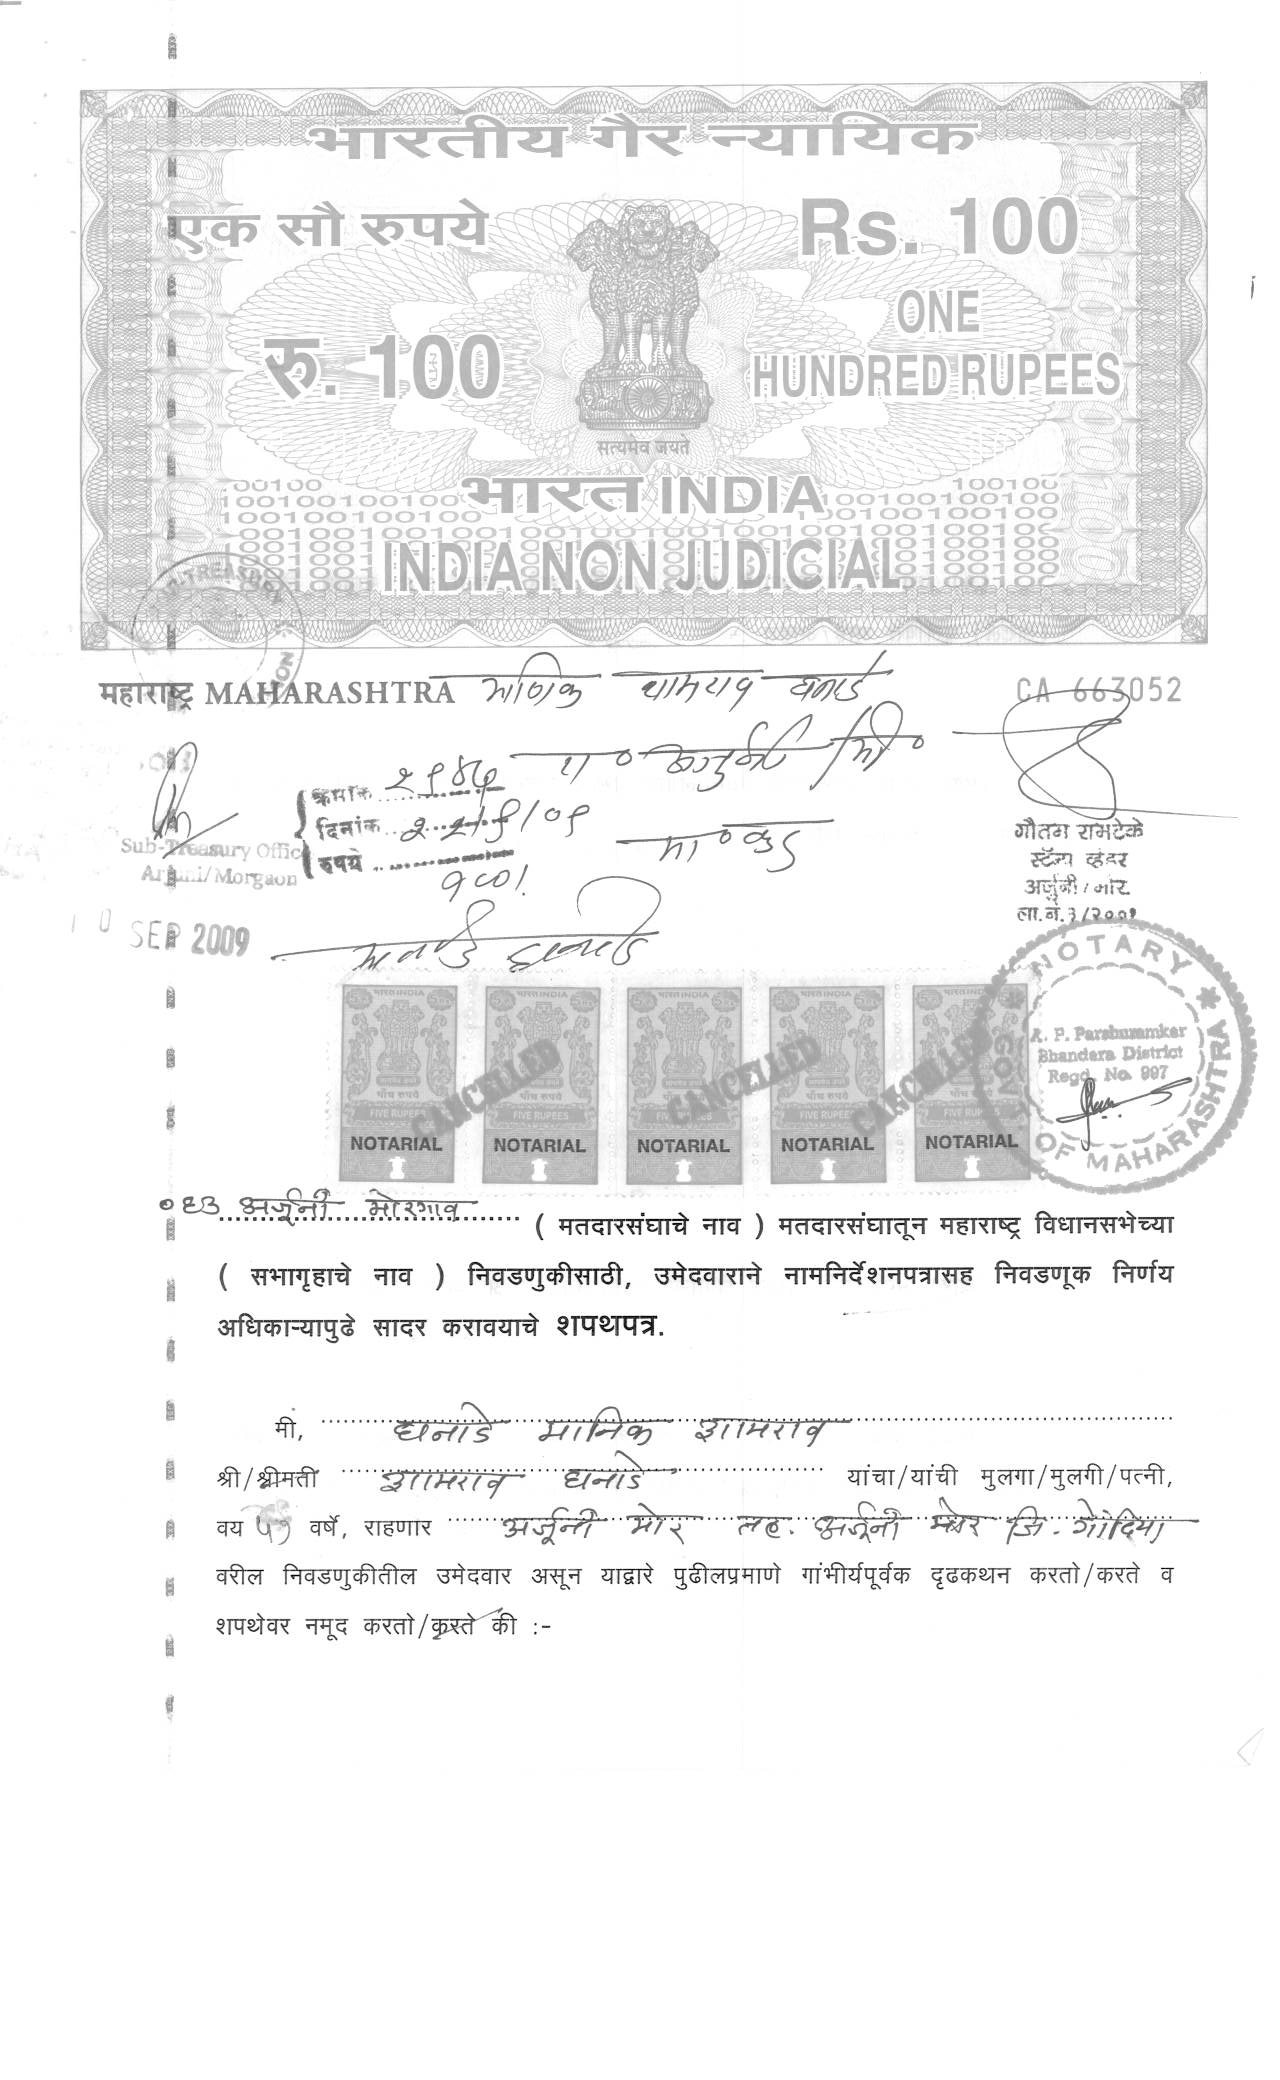 भारतीय गैर न्यायिक
एक सौ रुपये
Rs. 100
रु. 100
ONE
HUNDRED RUPEES
सत्यमेव जयते
भारत INDIA
INDIA NON JUDICIAL
महाराष्ट्र MAHARASHTRA
CA 663052
क्रमांक
दिनांक
रुपये
Sub-Treasury Office
Arjuni/Morgaon
10 SEP 2009
गौतम रामटेके
स्टॅम्प व्हेंडर
अर्जुनी/मोर.
NOTARY
A. P. Parshuramkar
Bhandara District
Regd. No. 997
GOVT. OF MAHARASHTRA
भारत INDIA भारत INDIA भारत INDIA भारत INDIA भारत INDIA
पाँच रुपये पाँच रुपये पाँच रुपये पाँच रुपये पाँच रुपये
FIVE RUPEES FIVE RUPEES FIVE RUPEES FIVE RUPEES FIVE RUPEES
CANCELLED CANCELLED CANCELLED
NOTARIAL NOTARIAL NOTARIAL NOTARIAL NOTARIAL
०६३ अर्जूनी मोरगाव ( मतदारसंघाचे नाव ) मतदारसंघातून महाराष्ट्र विधानसभेच्या
( सभागृहाचे नाव ) निवडणुकीसाठी, उमेदवाराने नामनिर्देशनपत्रासह निवडणूक निर्णय
अधिकाऱ्यापुढे सादर करावयाचे शपथपत्र.
मी, घनाडे मानिक शामराव
श्री/श्रीमती शामराव घनाडे यांचा/यांची मुलगा/मुलगी/पत्नी,
वय ५१ वर्षे, राहणार अर्जूनी मोर तह. अर्जूनी मोर जि. गोंदिया
वरील निवडणुकीतील उमेदवार असून याद्वारे पुढीलप्रमाणे गांभीर्यपूर्वक दृढकथन करतो/करते व
शपथेवर नमूद करतो/करते की :-